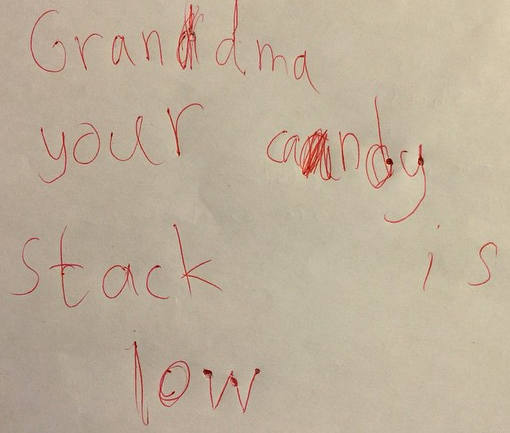 Grandma
your candy
Stack is
low